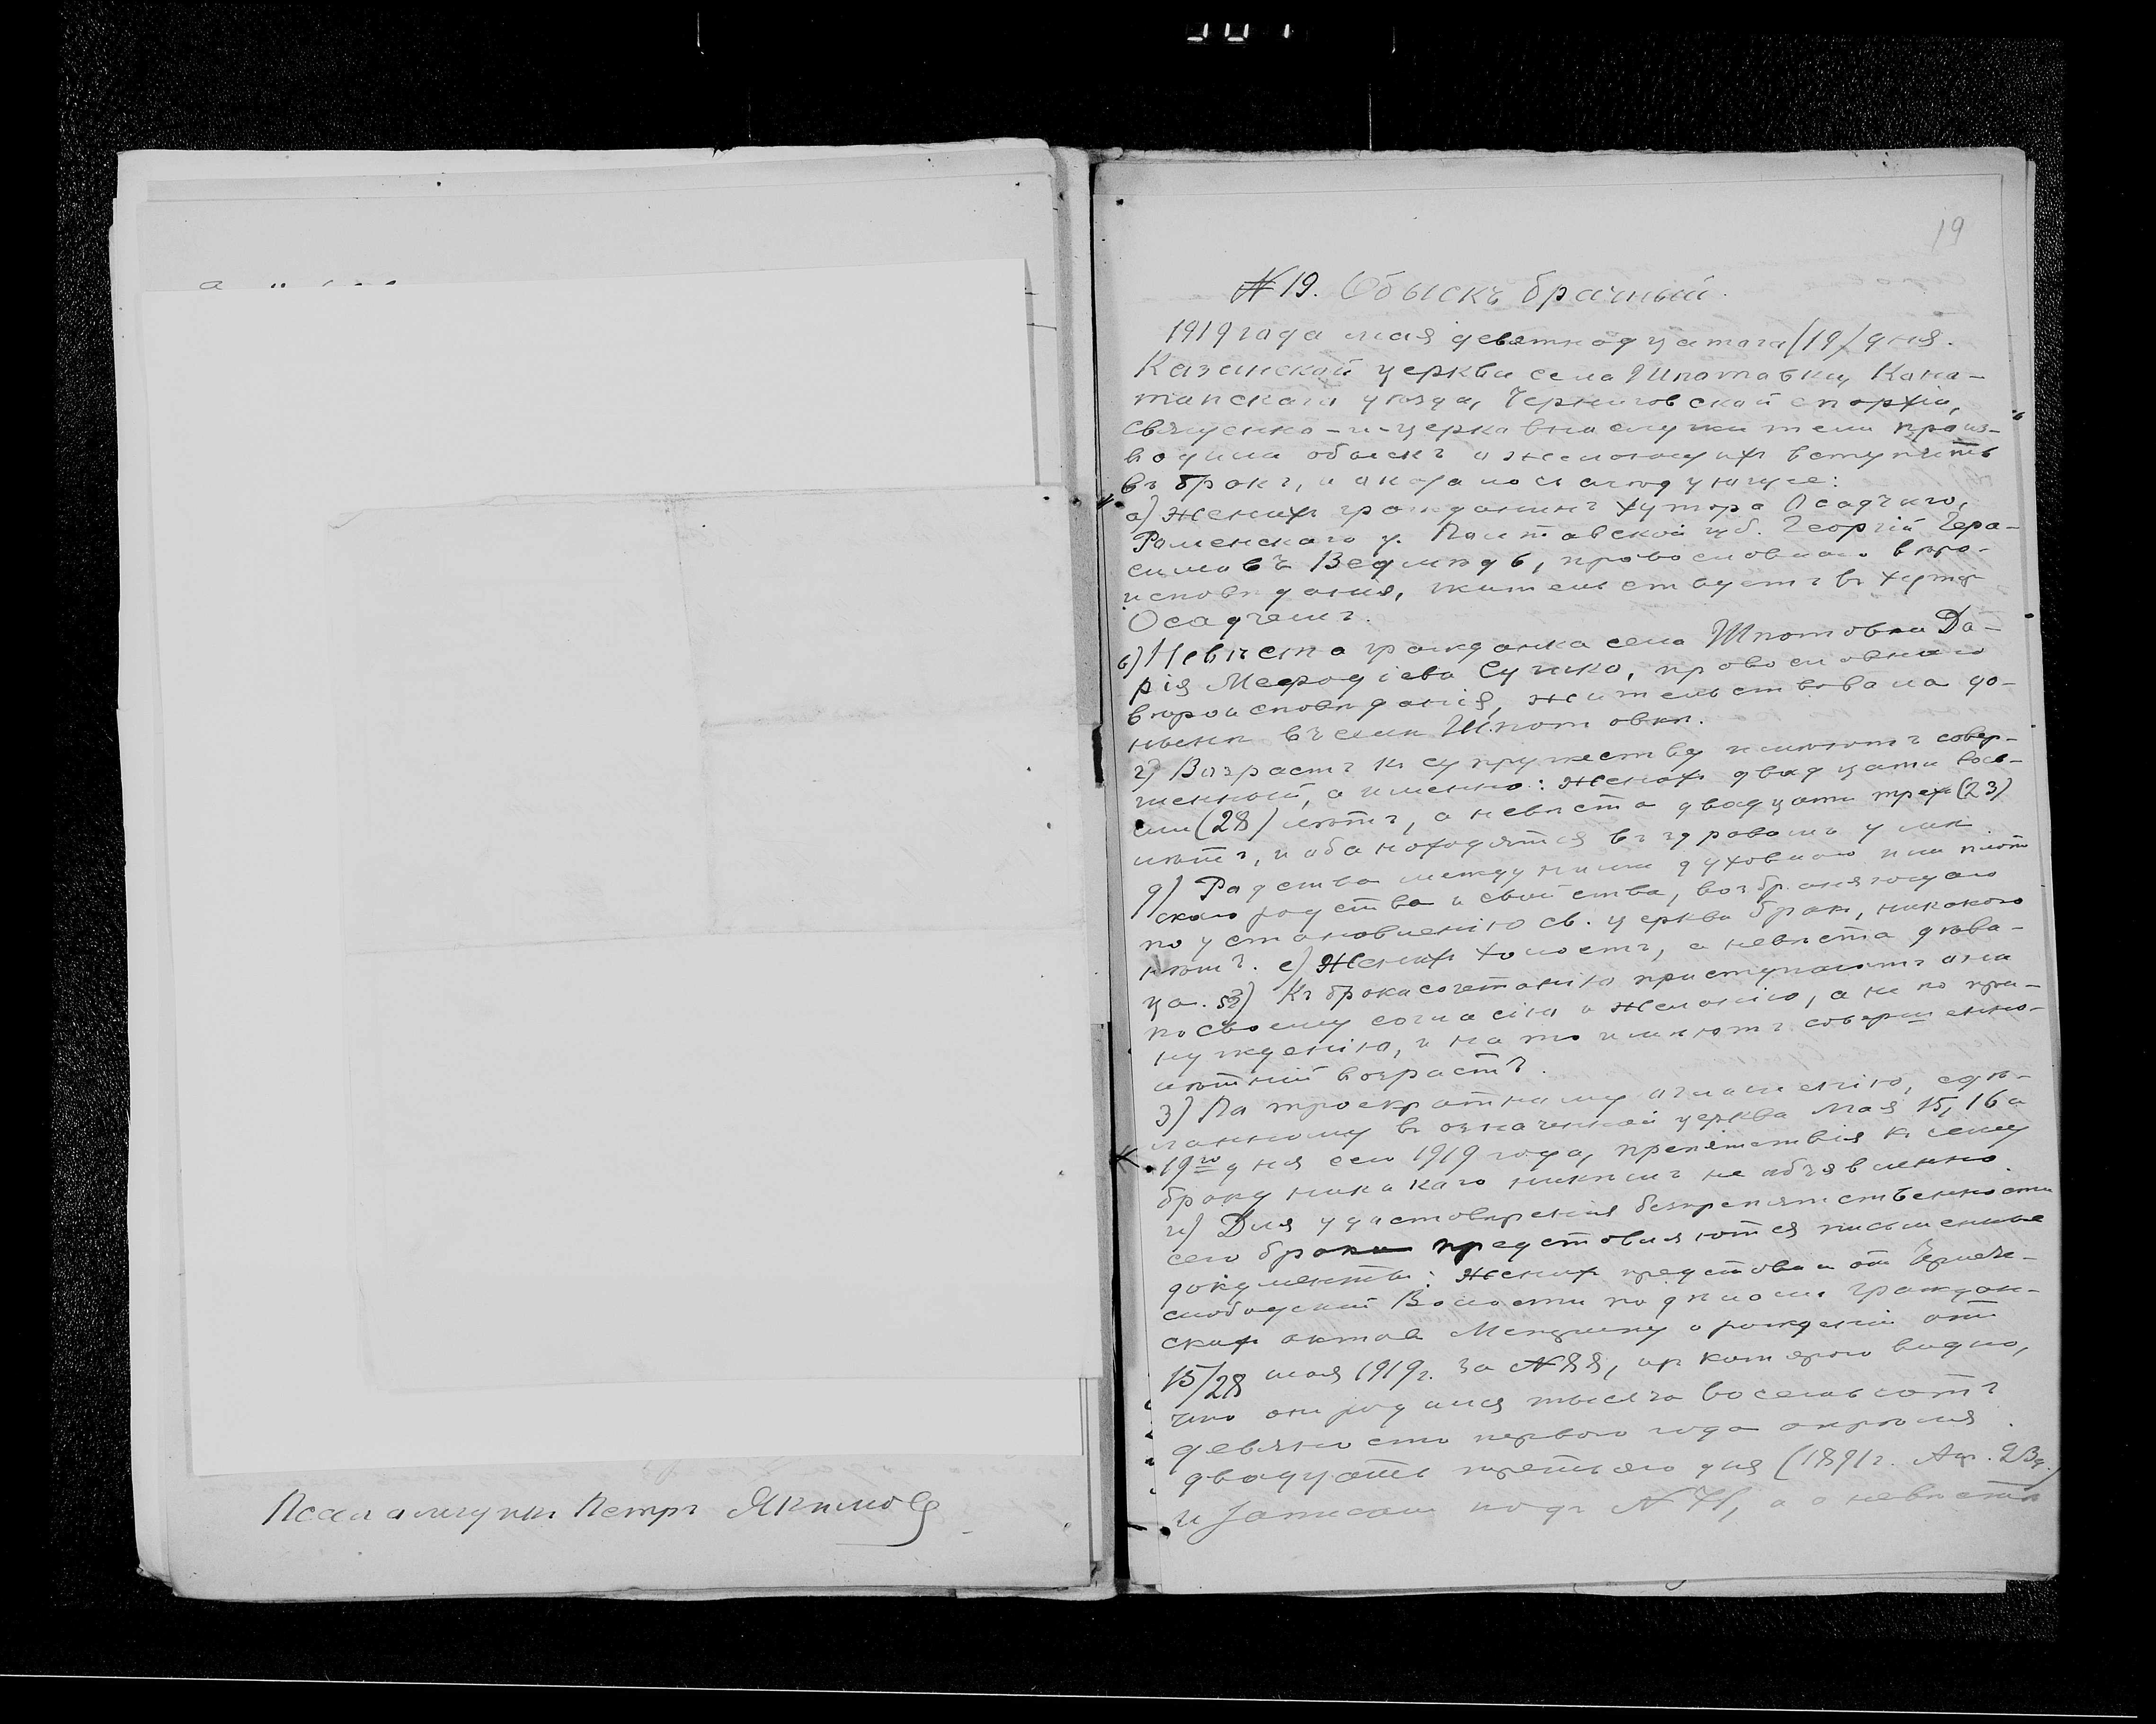 Псаломщикъ Петръ Якимовъ
19
№ 19. Обыскъ брачный.
1919 года мая девятнадцатаго /19/ дня.
Казанской церкви села Шпотовки, Коно-
топскаго уѣзда, Черниговской епархіи,
священно-и-церковнослужители произ-
водили обыскъ о желающихъ вступить
въ бракъ, и оказалось слѣдующее:
а) Женихъ гражданинъ хутора Осадчаго,
Роменскаго у. Полтавской губ. Георгій Гера-
симовъ Ведмѣдь, православнаго вѣро-
исповѣданія, жительствуетъ въ хуторѣ
Осадчемъ.
б) Невѣста гражданка села Шпотовки Да-
рія Меѳодіева Сушко, православнаго
вѣроисповѣданія, жительствовала до-
нынѣ въ селѣ Шпотовкѣ.
г) Возрастъ къ супружеству имѣютъ совер-
шенный, а именно: женихъ двадцати вось-
ми (28) лѣтъ, а невѣста двадцати трехъ (23)
лѣтъ, и оба находятся въ здравомъ умѣ.
д) Родства между ними духовнаго или плот
скаго родства и свойства, возбраняющаго
по установленію св. церкви бракъ, никакого
нѣтъ. е) Женихъ холостъ, а невѣста дѣви-
ца. ж) Къ бракосочетанію приступаютъ они
по своему согласію и желанію, а не по при-
нужденію, и на то имѣютъ совершенно-
лѣтній возрастъ.
з) По троекратному оглашенію, сдѣ-
ланному въ означенной церкви мая 15, 16 и
19го дня сего 1919 года, препятствія къ сему
браку никакого никѣмъ не объявлено.
и) Для удостовѣренія безпрепятственности
сего брака представляются письменные
документы: Женихъ представилъ отъ
слободской Волости по дѣламъ граждан-
скихъ актовъ о рожденіи отъ
15/28 мая 1919 г. за № 88, изъ котораго видно,
что онъ родился тысяча восемьсотъ
девяносто перваго года апрѣля
двадцать третьяго дня (1891 г. Апр. 23 д.)
и записанъ подъ № 71, а о невѣстѣ